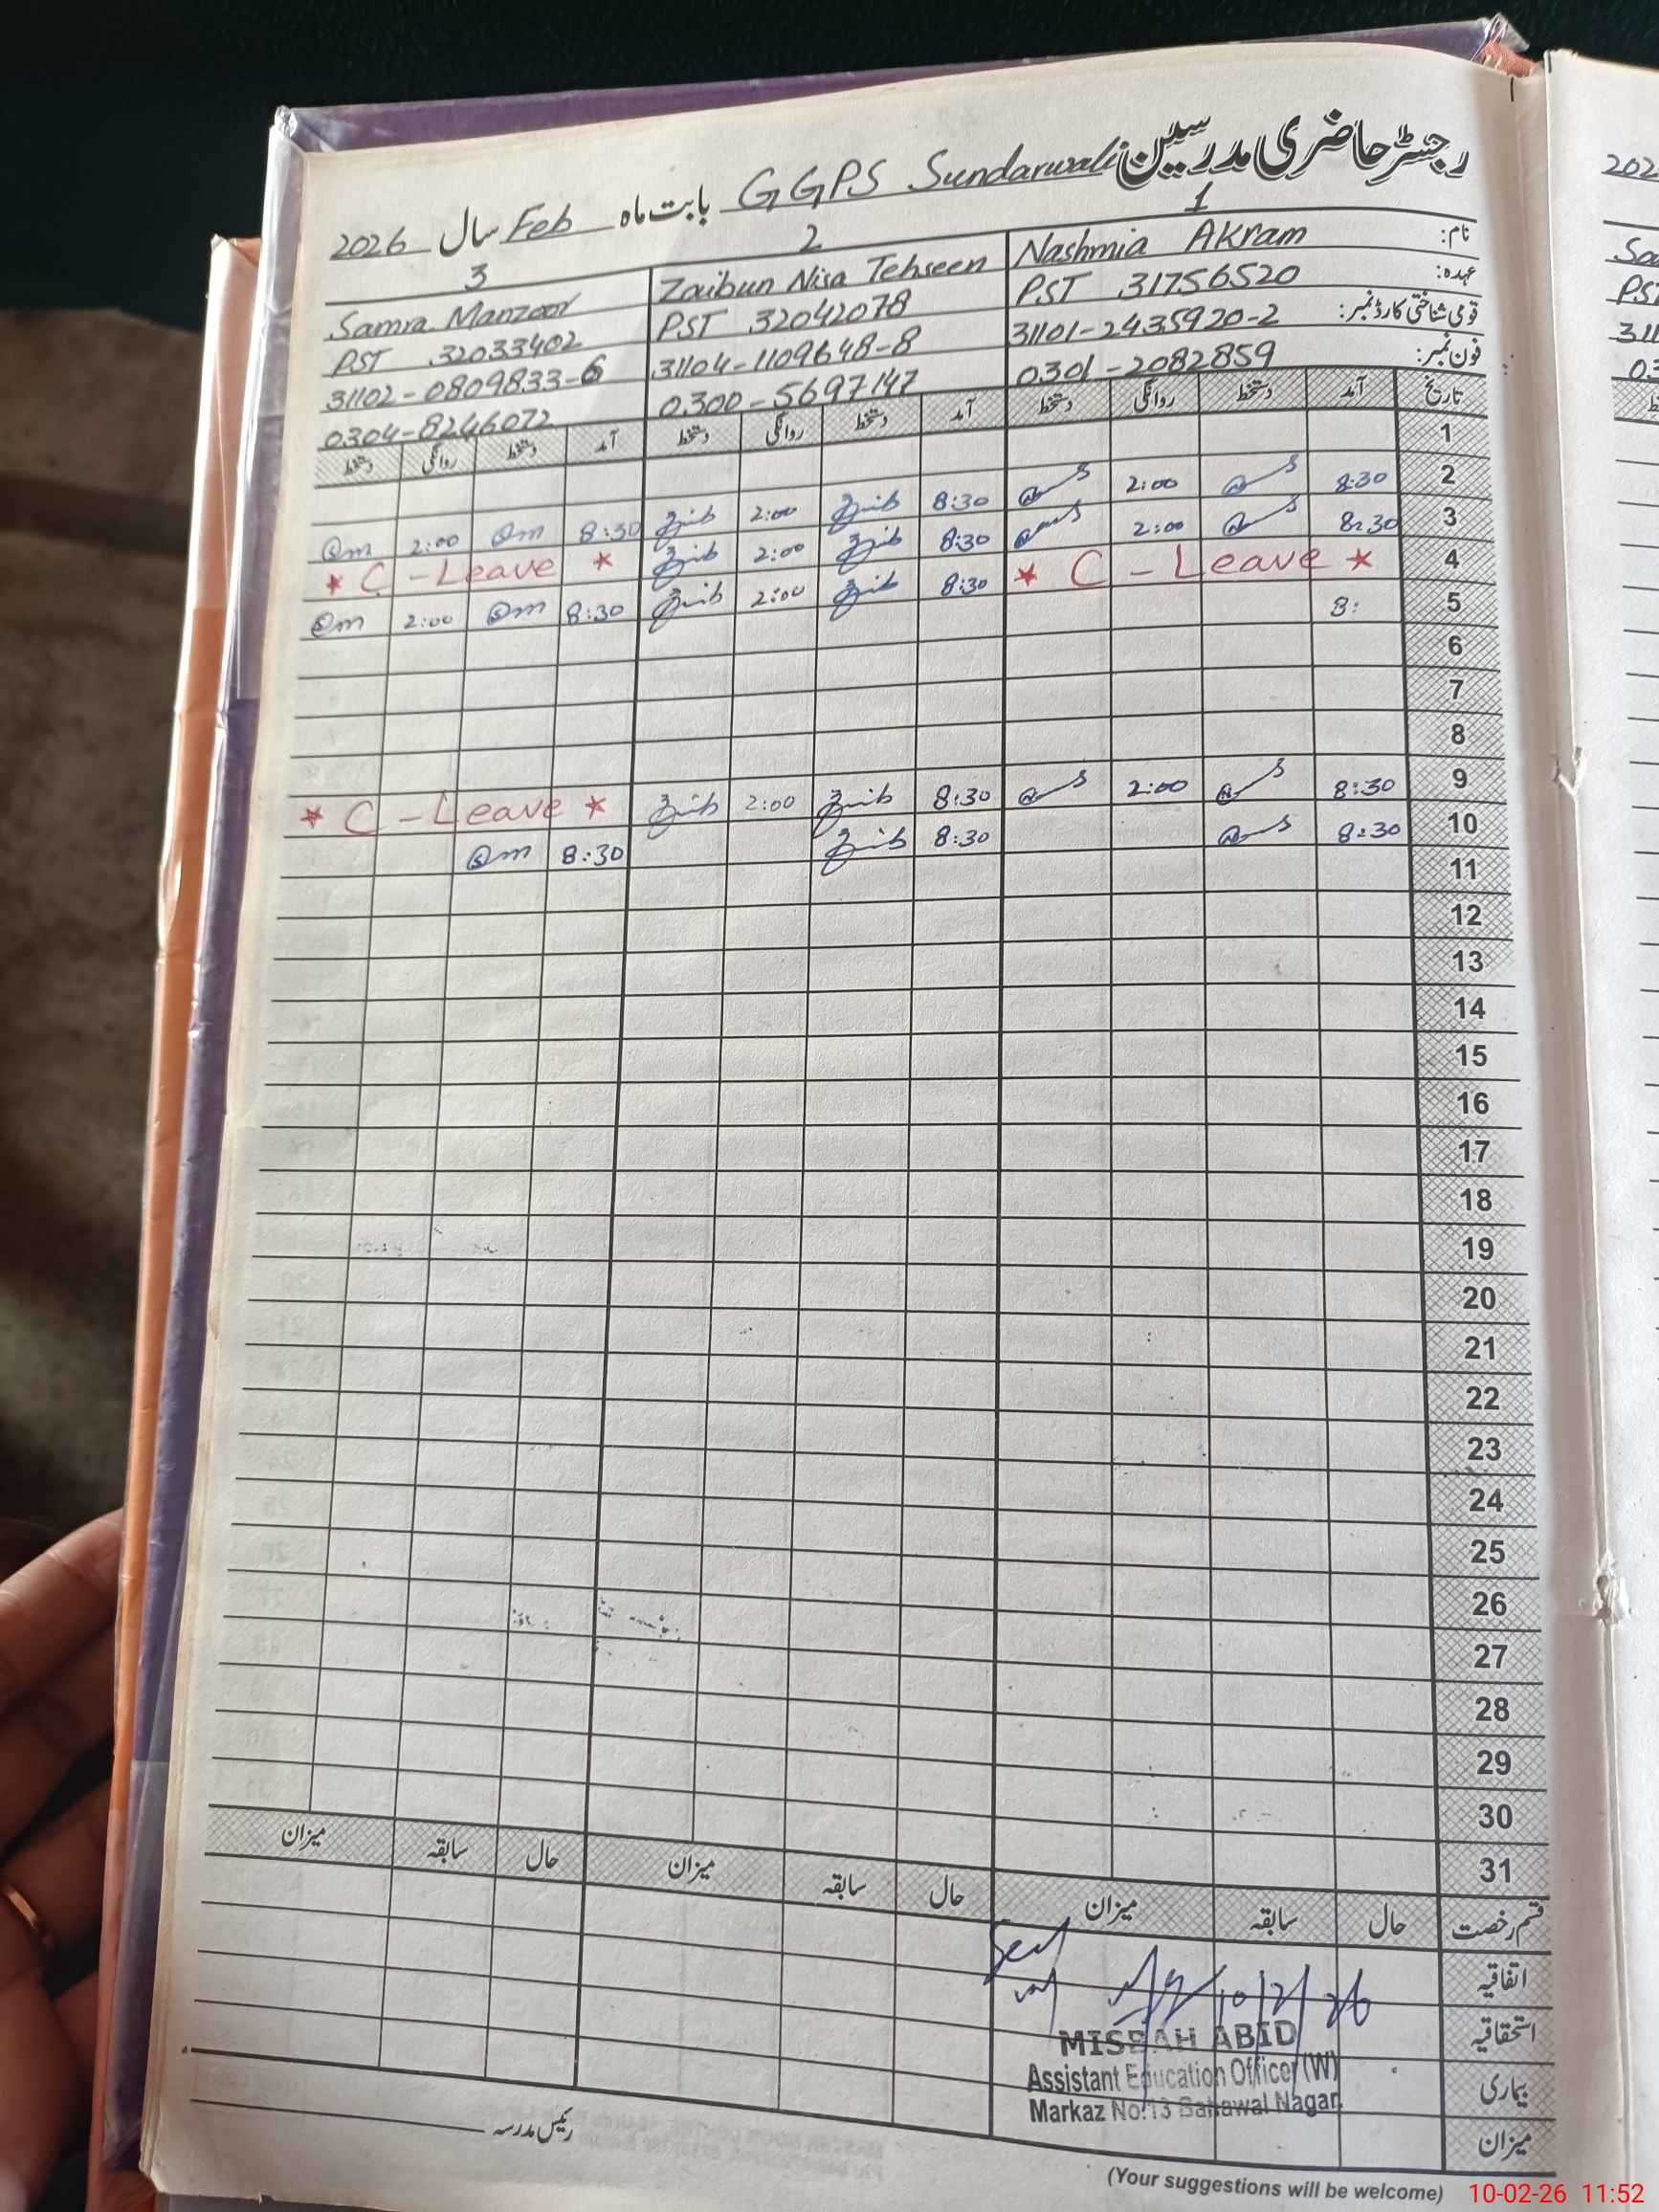 رجسٹر حاضری مدرسین GGPS Sundarwali بابت ماہ Feb سال 2026
1 2 3
نام: Nashmia Akram Zaibun Nisa Tehseen Samra Manzoor
عہدہ: PST 31756520 PST 32042078 PST 32033402
قومی شناختی کارڈ نمبر: 31101-2435920-2 31104-1109648-8 31102-0809833-6
فون نمبر: 0301-2082859 0300-5697147 0304-8246072
تاریخ آمد دستخط روانگی دستخط آمد دستخط روانگی دستخط آمد دستخط روانگی دستخط
1
2 8:30 2:00 8:30 2:00 8:30 2:00
3 8:30 2:00 8:30 2:00 * C-Leave *
4 * C-Leave * 8:30 2:00 8:30 2:00
5 8:
6
7
8
9 8:30 2:00 8:30 2:00 * C-Leave *
10 8:30 8:30 8:30
11
12
13
14
15
16
17
18
19
20
21
22
23
24
25
26
27
28
29
30
31
قسم رخصت حال سابقہ میزان حال سابقہ میزان حال سابقہ میزان
اتفاقیہ
استحقاقیہ
بیماری
میزان
10/2/26
MISBAH ABID
Assistant Education Officer (W)
Markaz No.13 Bahawal Nagar
رئیس مدرسہ
(Your suggestions will be welcome)
10-02-26 11:52